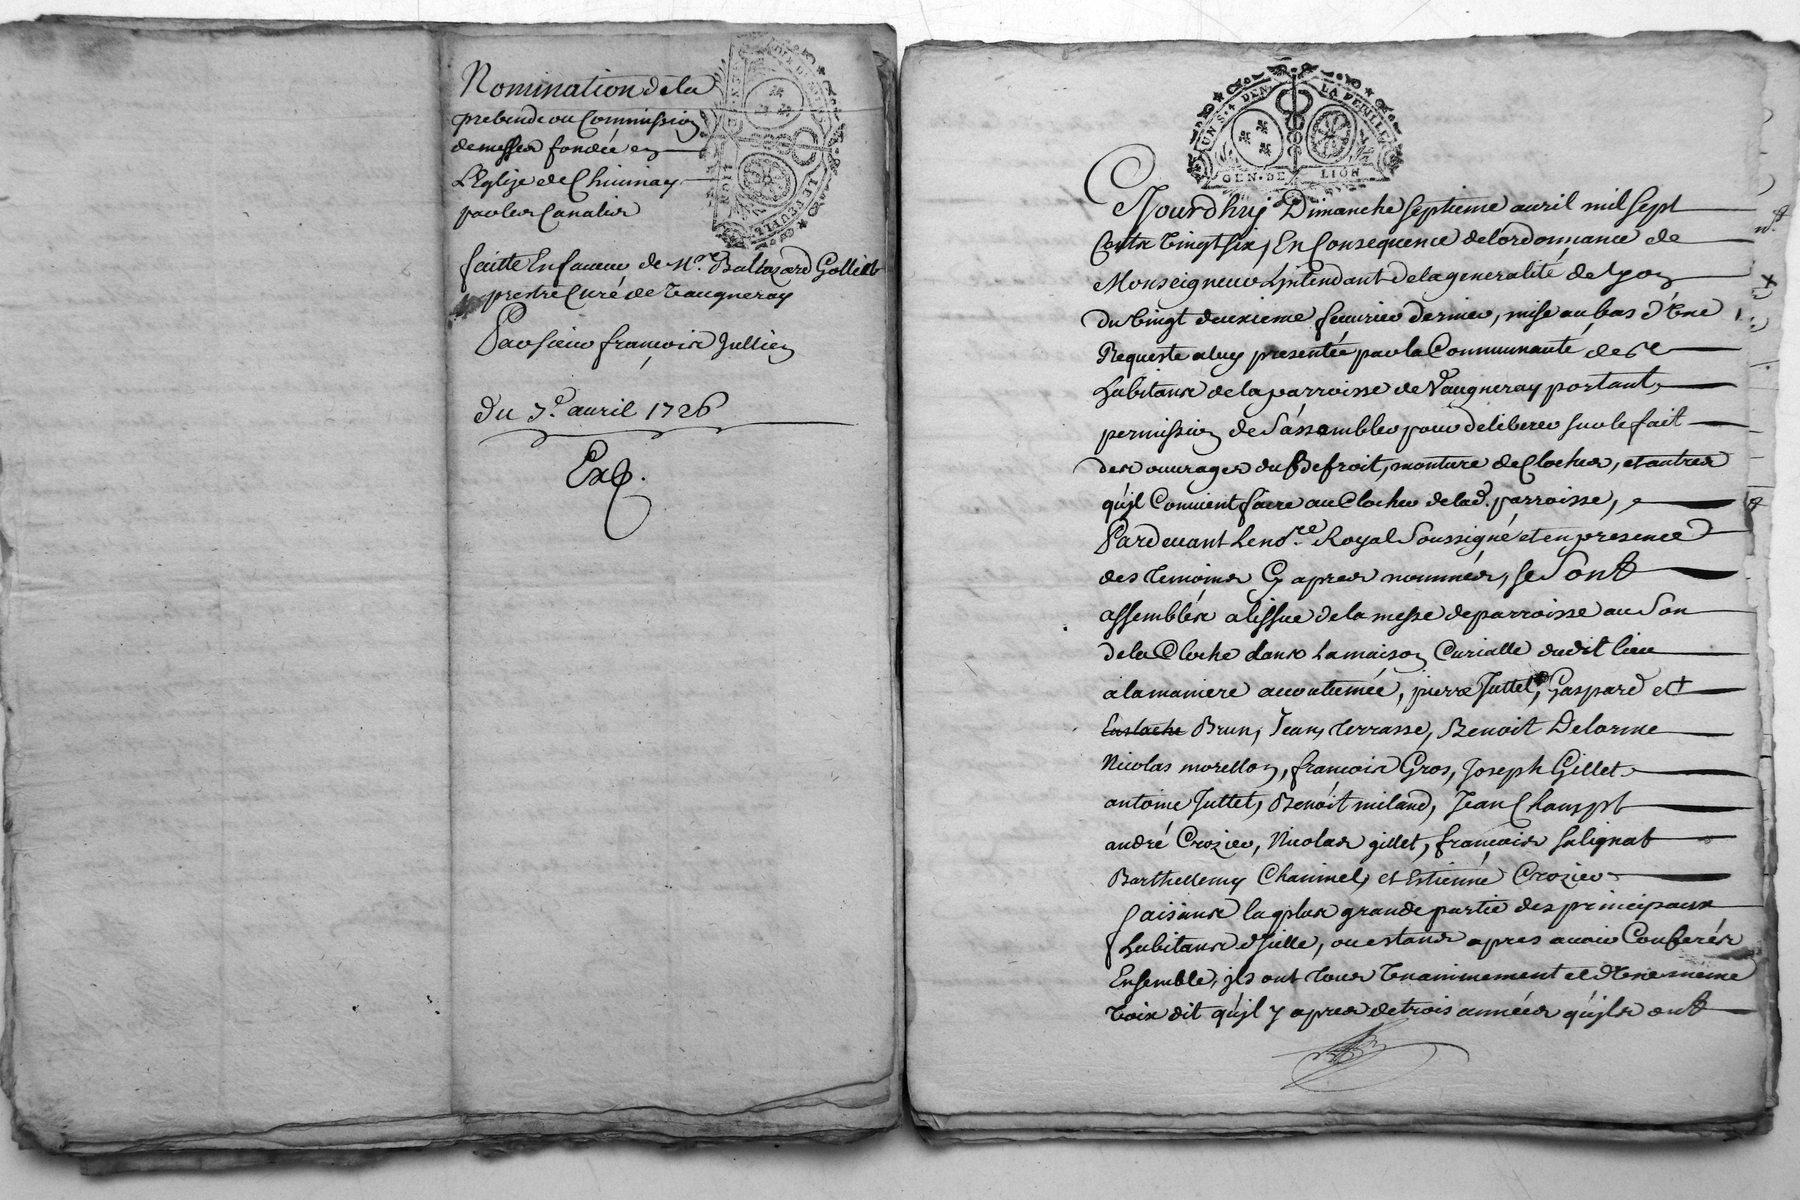 Nomination de la
prebende ou Commission
de messes fondée en
L'Eglize de Chuinay
par les Canalis
faitte En faveur de Mre Baltazard
prestre Curé de Vaugneray
Par sieur françois Jullien
du 7e avril 1726
Exp.
UN S. 4 DEN LA FEUILLE
GEN. DE LION
Cejourdhuj Dimanche septieme auril mil sept
Cents Vingt six, En Consequence de l'ordonnance de
Monseigneur Lintendant de la generalité de Lyon
du Vingt deuxieme feurier dernier, mise au bas d'Vne
Requeste a luy presentée par la Communauté de
habitans de la parroisse de Vaugneray portant
permission de s'assembler pour deliberer sur le fait
des ouvrages du Befroit, monture de Cloches, et autres
qu'jl Conuient faire au Clocher de lad. parroisse,
Pardeuant Le nore Royal Soussigné et en presence
des temoins Cy apres nommés, se sont
assemblés a lissue de la messe de parroisse au son
de la Cloche dans la maison Curialle dudit lieu
a la maniere accoutumée, pierre Juttet, Gaspard et
Eustache Brun, Jean Terrasse, Benoit Delorme
Nicolas morellon, françois Gros, Joseph Gillet
antoine Juttet, Benoit miland, Jean
andré Crozier, Nicolas gillet, françois Salignat
Barthellemy et Estienne Crozier
faisans la plus grande partie des principaux
habitans d'jcelle, ou estans apres auoir Conferés
Ensemble, jls ont tous Vnanimement et d'Vne meme
Voix dit qu'jl y a pres de trois années qu'jls ont